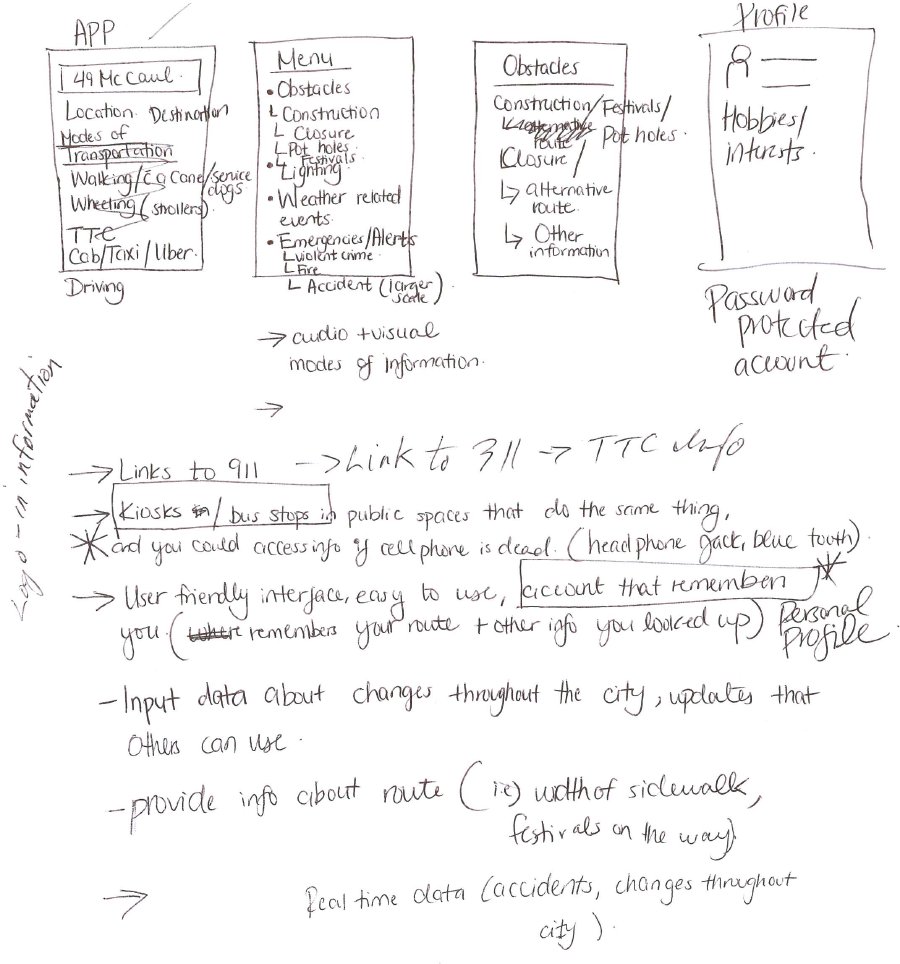 APP
49 McCaul.
Location. Destination
Modes of
Transportation
Walking/ Cane/service
dogs
Wheeling (strollers).
TTC
Cab/Taxi/Uber.
Driving
Menu
• Obstacles
Construction
Closure
Pot holes
Festivals
• Lighting
• Weather related
events.
• Emergencies/Alerts
violent crime.
Fire
Accident (larger
scale).
→ audio + visual
modes of information.
→
Obstacles
Construction/Festivals/
Pot holes.
alternative
route
Closure/
↳ alternative
route.
↳ Other
information
Profile
Hobbies/
interests.
Password
protected
account.
Logo-in information
→ Links to 911 → Link to 311 → TTC info
→ Kiosks in/bus stops in public spaces that do the same thing,
* and you could access info if cell phone is dead. (headphone jack, blue tooth).
→ User friendly interface, easy to use, account that remembers *
you. (where remembers your route + other info you looked up) Personal
Profile.
- Input data about changes throughout the city, updates that
others can use.
- provide info about route (i.e) width of sidewalk,
festivals on the way).
→ Real time data (accidents, changes throughout
city).